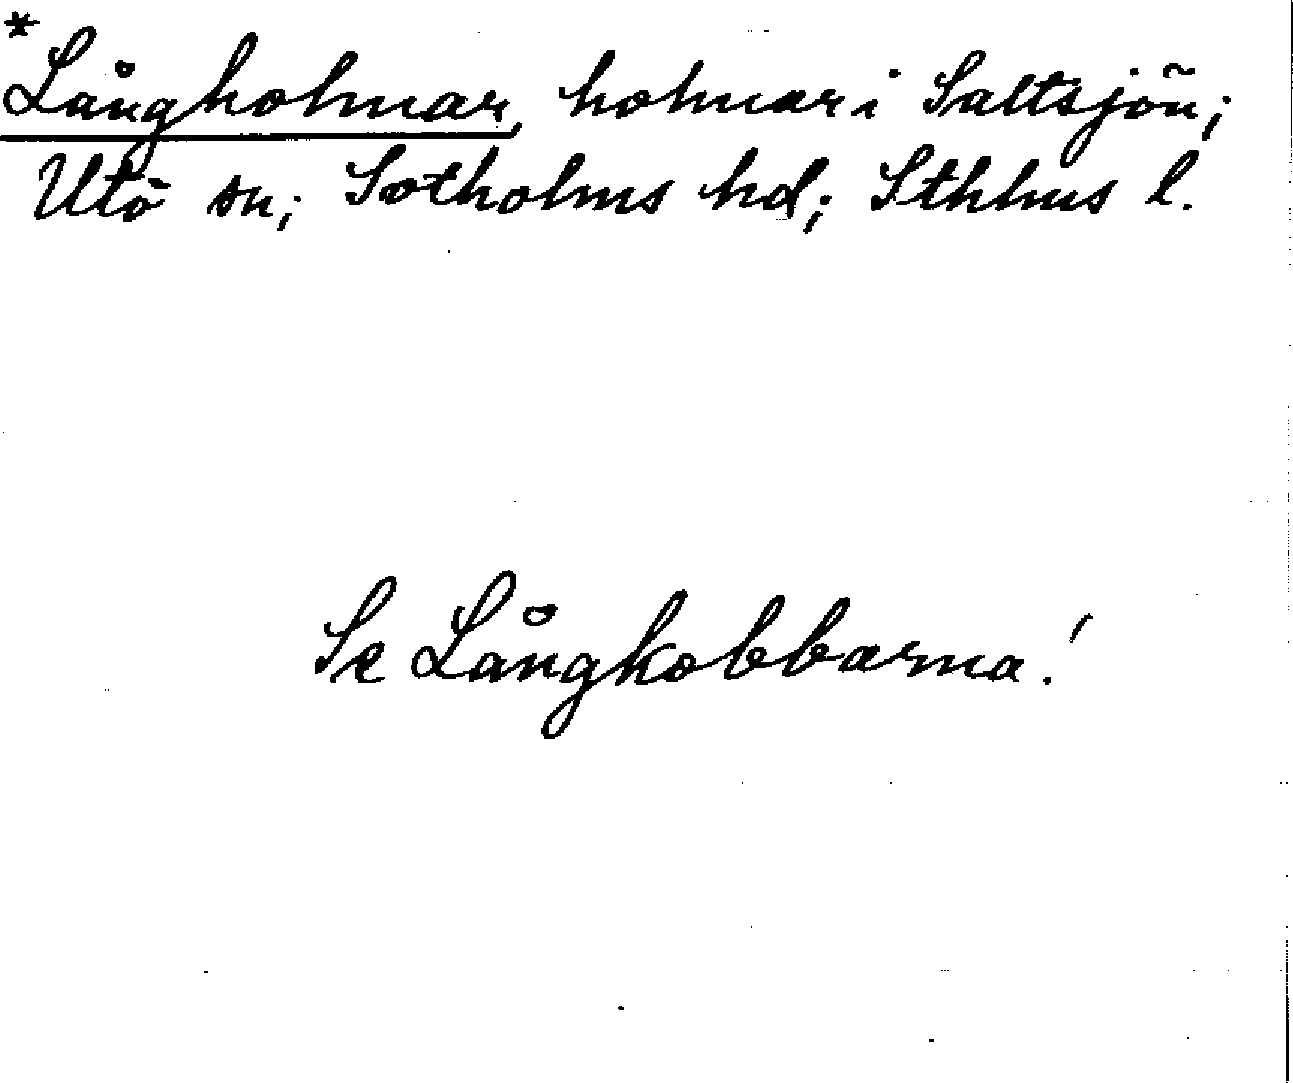 *
Långholmar, holmar i Saltsjön;
Utö sn; Sotholms hd; Sthlms l.
Se Långkobbarna!